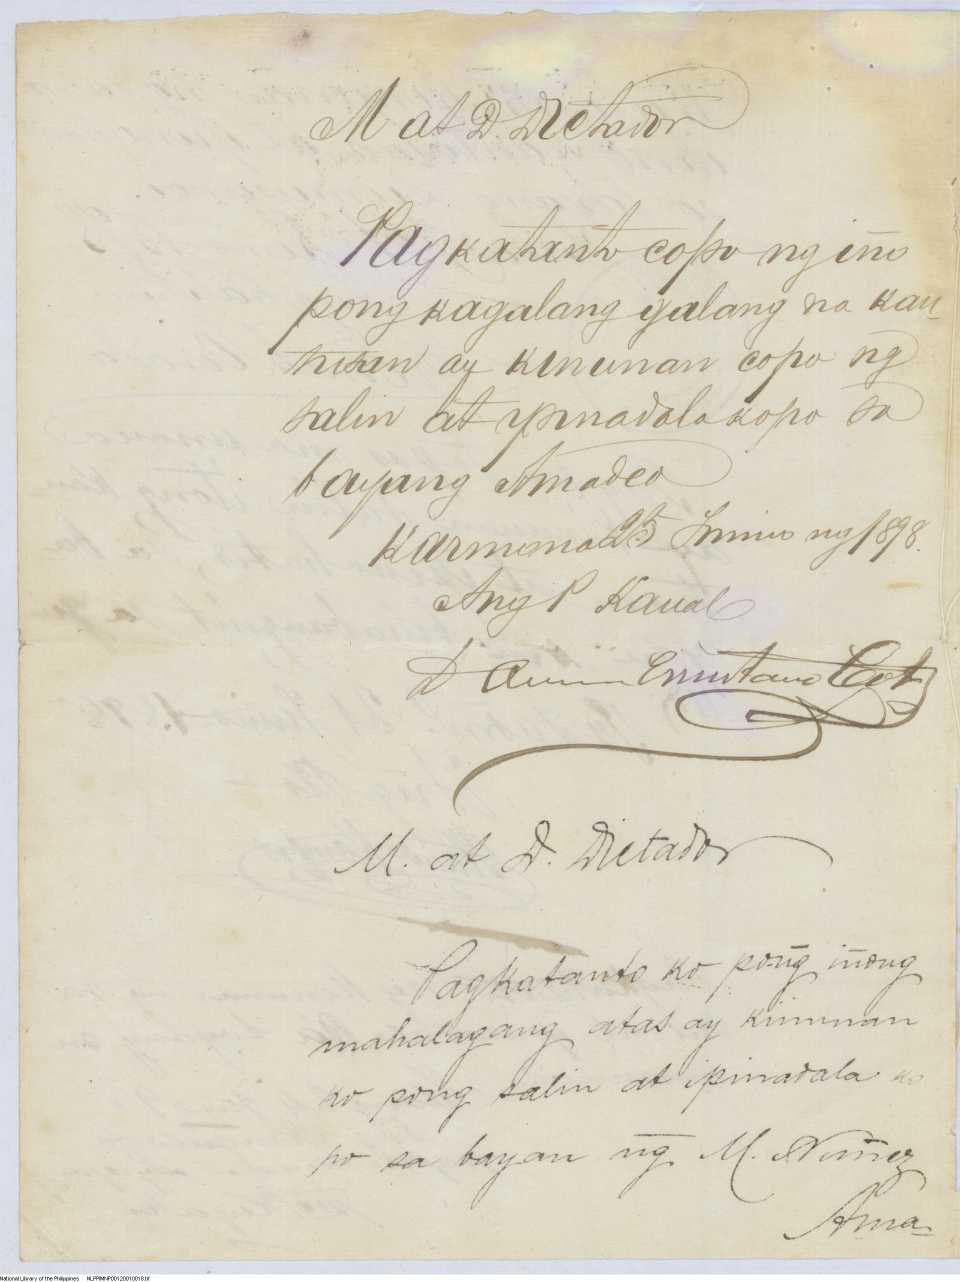 M at D. Dictador
Pagkatanto copo ng ino
pong kagalang galang na kau
tusan ay kinunan copo ng̃
salin at ypinadala kopo sa
bayang Amadeo
Karmona 25 Junio ng 1898.
Ang P Kaual
M. at D. Dictador
Pagkatanto ko pong̃ inong
mahalagang atas ay kinunan
ko pong salin at ipinadala ko
po sa bayan ng̃ M. Nuñez
Ama-
National Library of the Philippines NLPPIMNP00120010018.tif